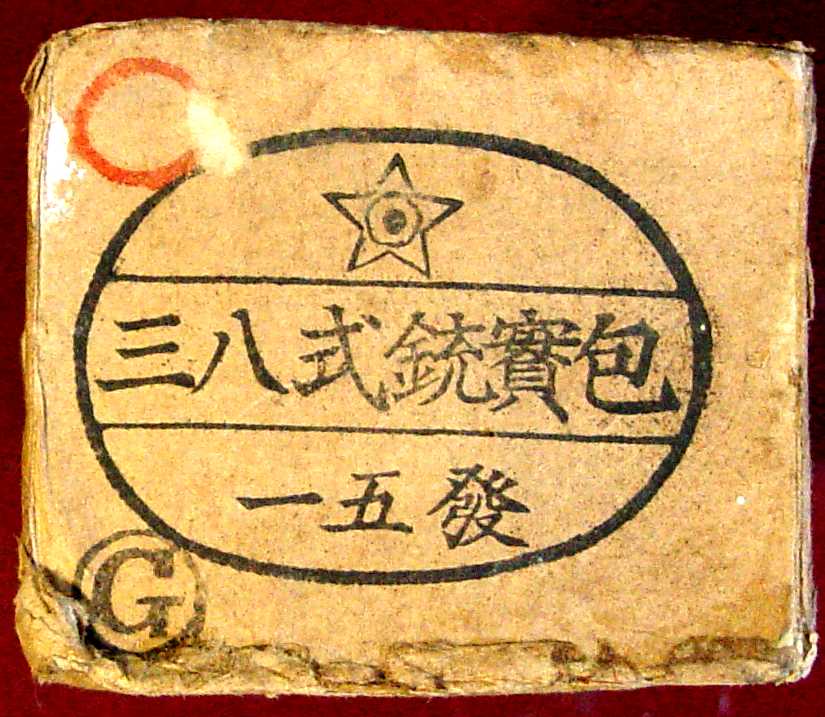 三八式銃實包
一五發
G